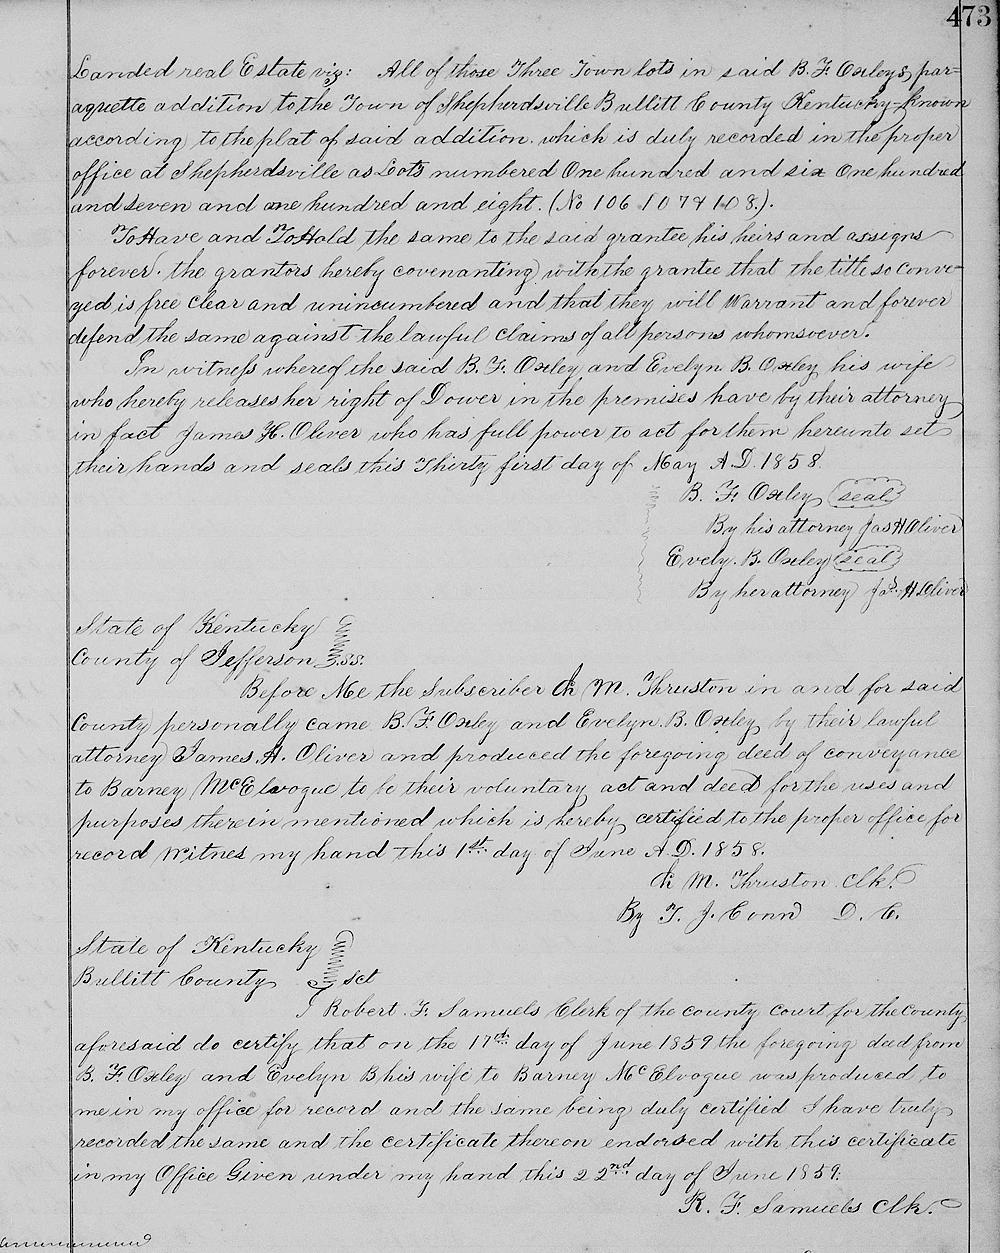 473
Landed real Estate viz: All of those Three Town lots in said B. F. Oxleys par=
aquette addition to the Town of Shepherdsville Bullitt County Kentucky known
according to the plat of said addition. which is duly recorded in the proper
office at Shepherdsville as Lots numbered One hundred and six One hundred
and seven and one hundred and eight. (No 106 107 & 108.).
To Have and To Hold the same to the said grantee his heirs and assigns
forever. the grantors hereby covenanting with the grantee that the title so conve-
yed is free clear and unincumbered and that they will Warrant and forever
defend the same against the lawful claims of all persons whomsoever.
In witness whereof the said B. F. Oxley and Evelyn B. Oxley his wife
who hereby releases her right of Dower in the premises have by their attorney
in fact James H. Oliver who has full power to act for them hereunto set
their hands and seals this Thirty first day of May A.D. 1858.
B. F. Oxley (seal)
By his attorney Jas H Oliver
Evely. B. Oxley (seal)
By her attorney Jas. H Oliver
State of Kentucky
County of Jefferson S.S.
Before Me the Subscriber Ch M. Thruston in and for said
County personally came B. F. Oxley and Evelyn. B. Oxley by their lawful
attorney James H. Oliver and produced the foregoing deed of conveyance
to Barney McElvogue to be their voluntary act and deed for the uses and
purposes therein mentioned which is hereby certified to the proper office for
record Witnes my hand this 1st day of June A.D. 1858.
Ch M. Thruston Clk.
By T. J. Conn D. C.
State of Kentucky
Bullitt County Sct
I Robert. F. Samuels Clerk of the county court for the county
aforesaid do certify that on the 17th day of June 1859 the foregoing deed from
B. F. Oxley and Evelyn B his wife to Barney McElvogue was produced to
me in my office for record and the same being duly certified I have truly
recorded the same and the certificate thereon endorsed with this certificate
in my Office Given under my hand this 22nd day of June 1859.
R. F. Samuels Clk.